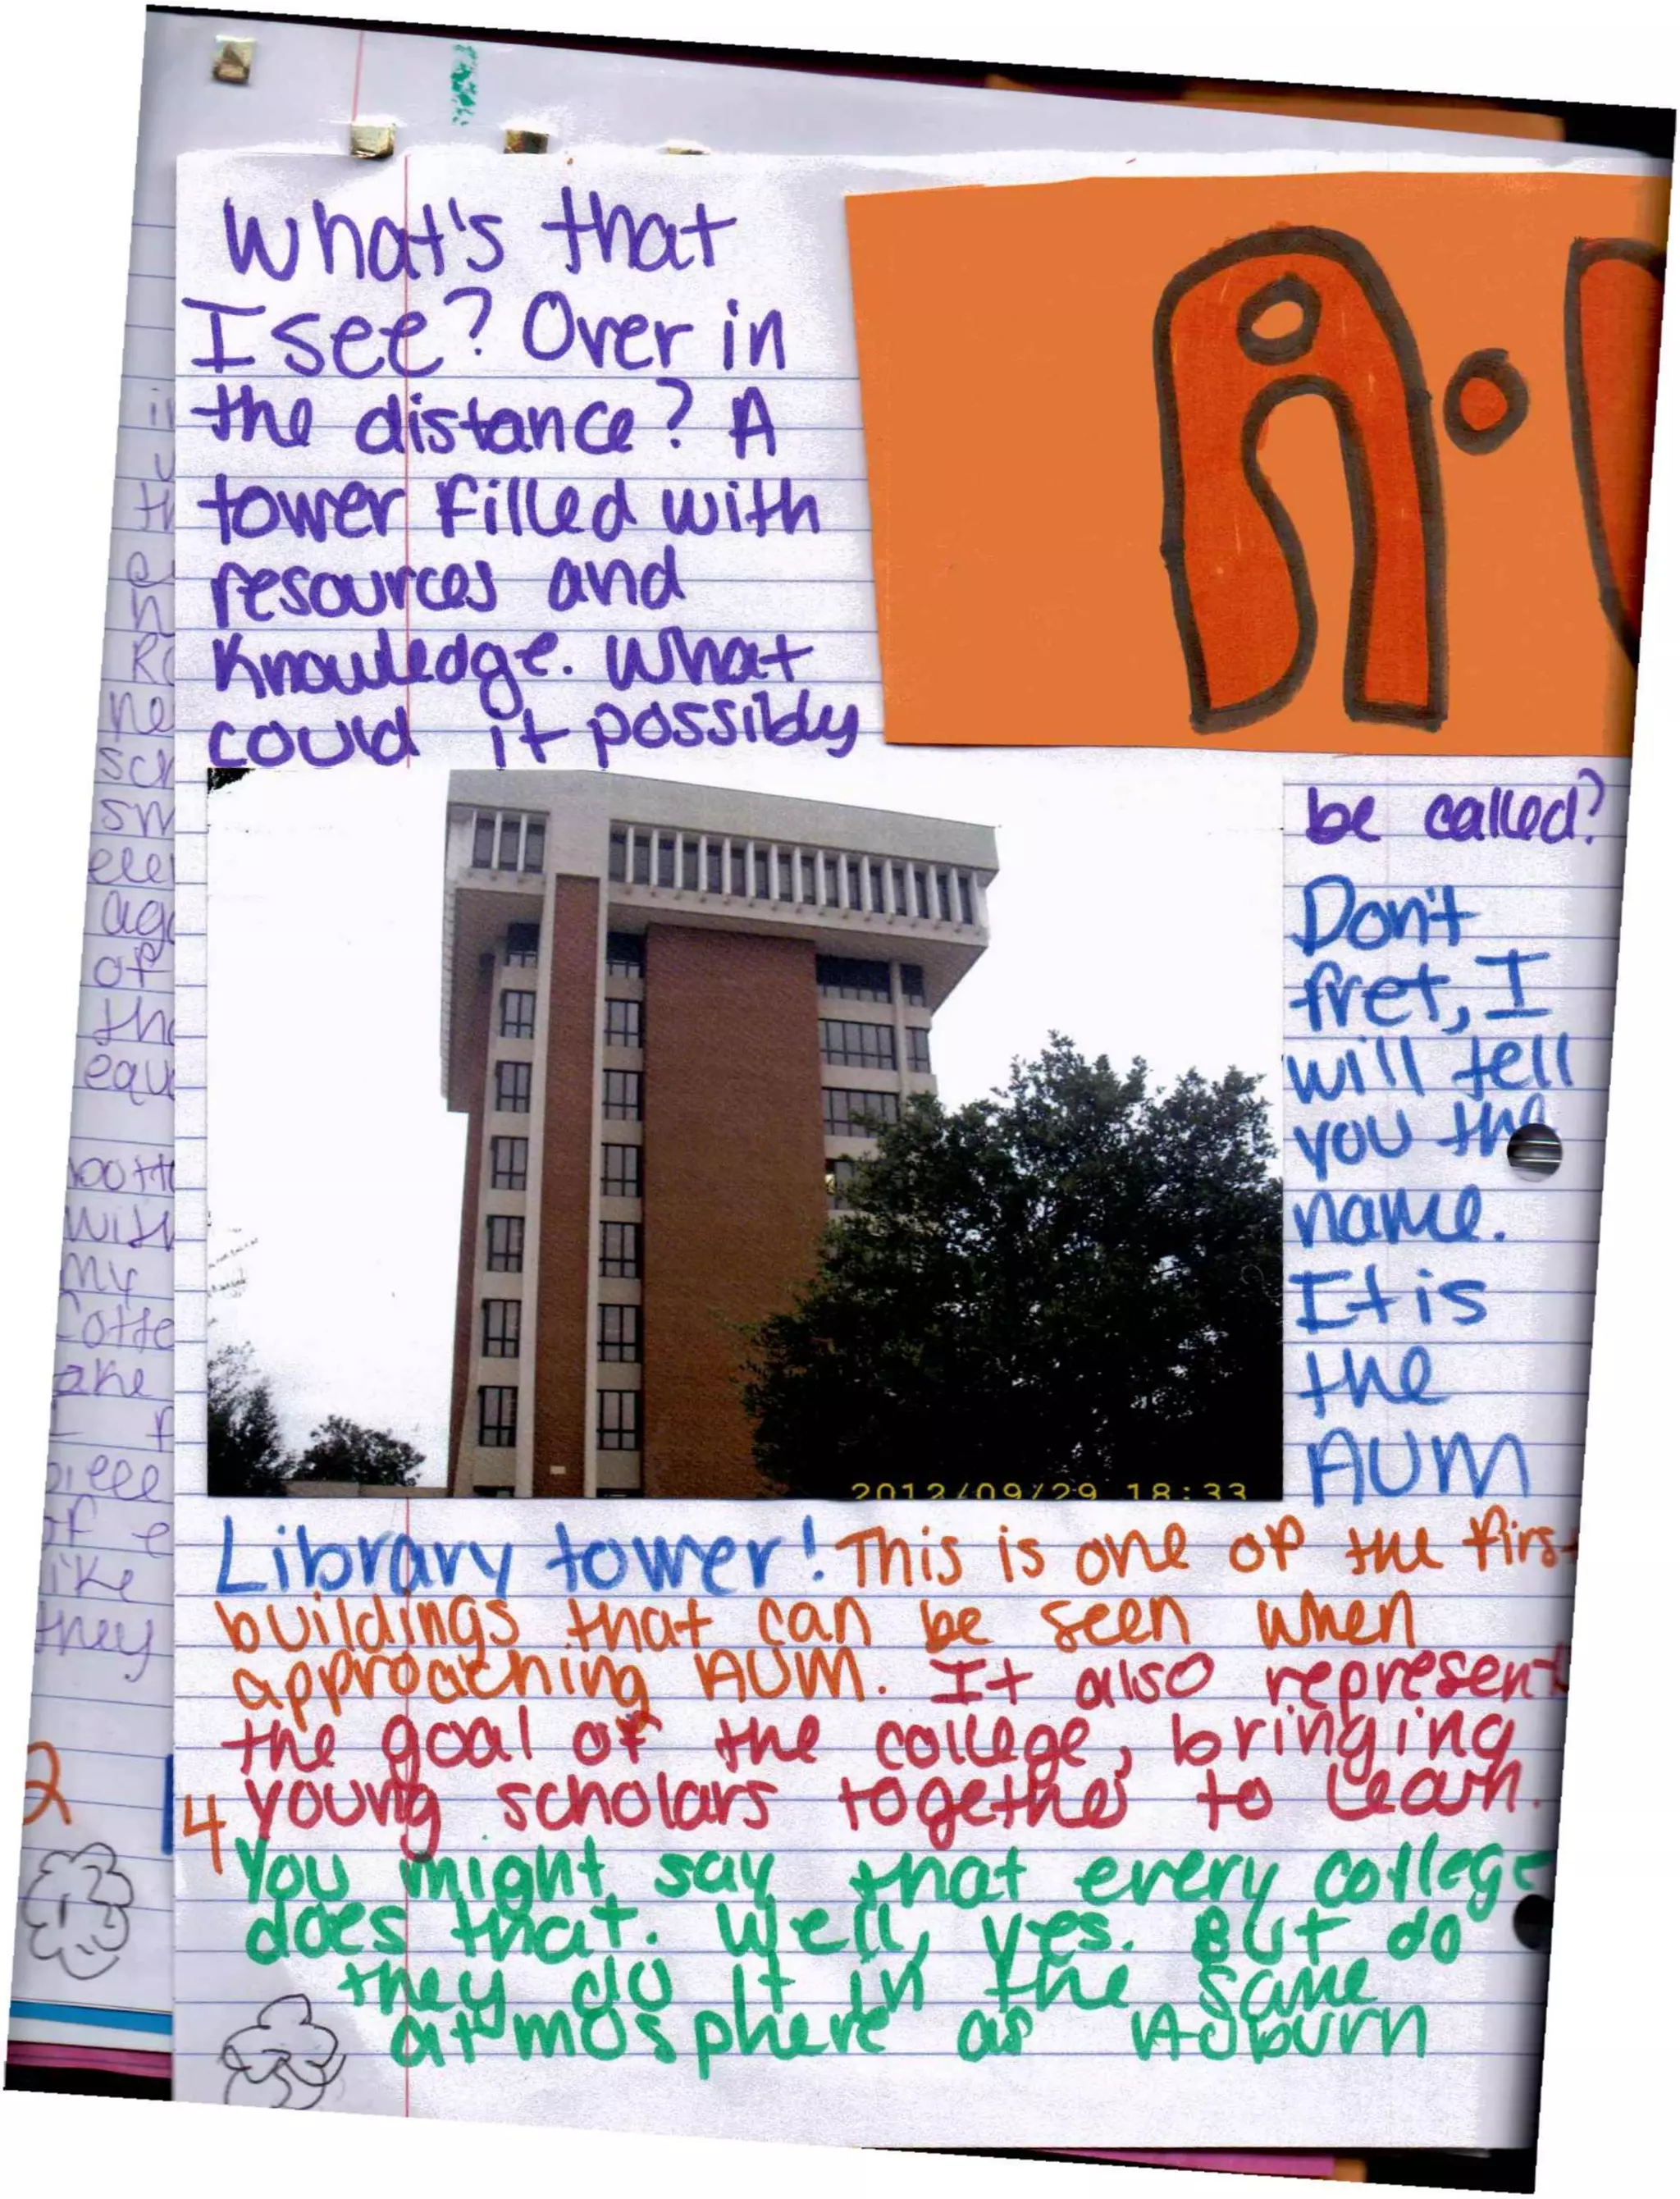 What's that
I see? Over in
the distance? A
tower filled with
resources and
knowledge. What
could it possibly
A.
be called?
Don't
fret, I
will tell
you the
name.
It is
the
AUM
2012/09/29 18:33
Library tower! This is one of the first
buildings that can be seen when
approaching AUM. It also represent
the goal of the college, bringing
young scholars together to learn.
4
You might say that every college
does that. Well, yes. But do
they do it in the same
atmosphere as Auburn
th
e
n
ne
sm
of
the
with
my
ake
like
they
2